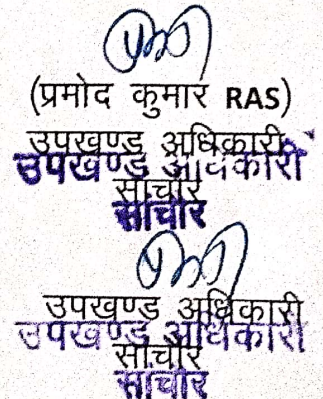 (प्रमोद कुमार RAS)
उपखण्ड अधिकारी
उपखण्ड अधिकारी
सांचौर
सांचौर
उपखण्ड अधिकारी
उपखण्ड अधिकारी
सांचौर
सांचौर